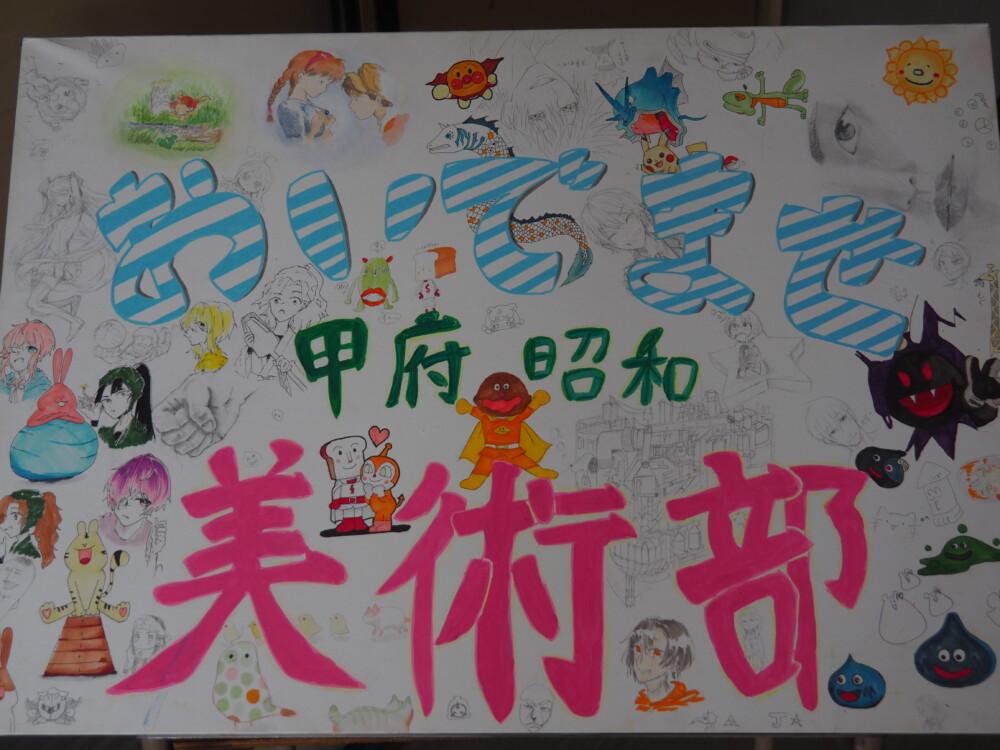 おいでませ
甲府 昭和
美術部